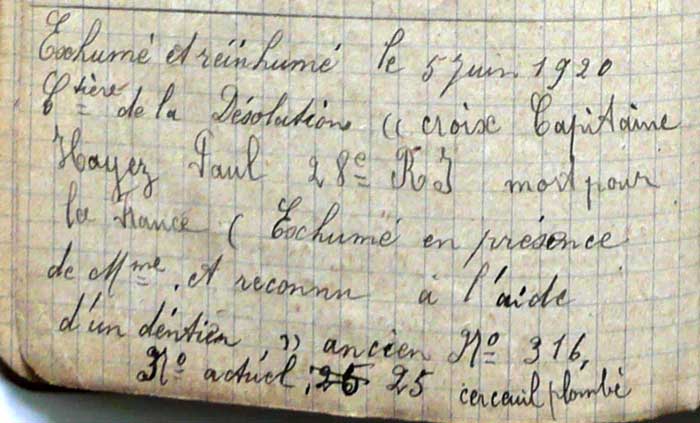 Exhumé et réinhumé le 5 juin 1920
Ctière de la Désolation (( croix Capitaine
Hayez Paul 28e RI mort pour
la France ( Exhumé en présence
de Mme, et reconnu à l'aide
d'un dentier )) ancien No 316,
No actuel, 26 25 cercueil plombé